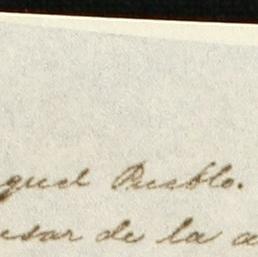 quel Pueblo.
usar de la a